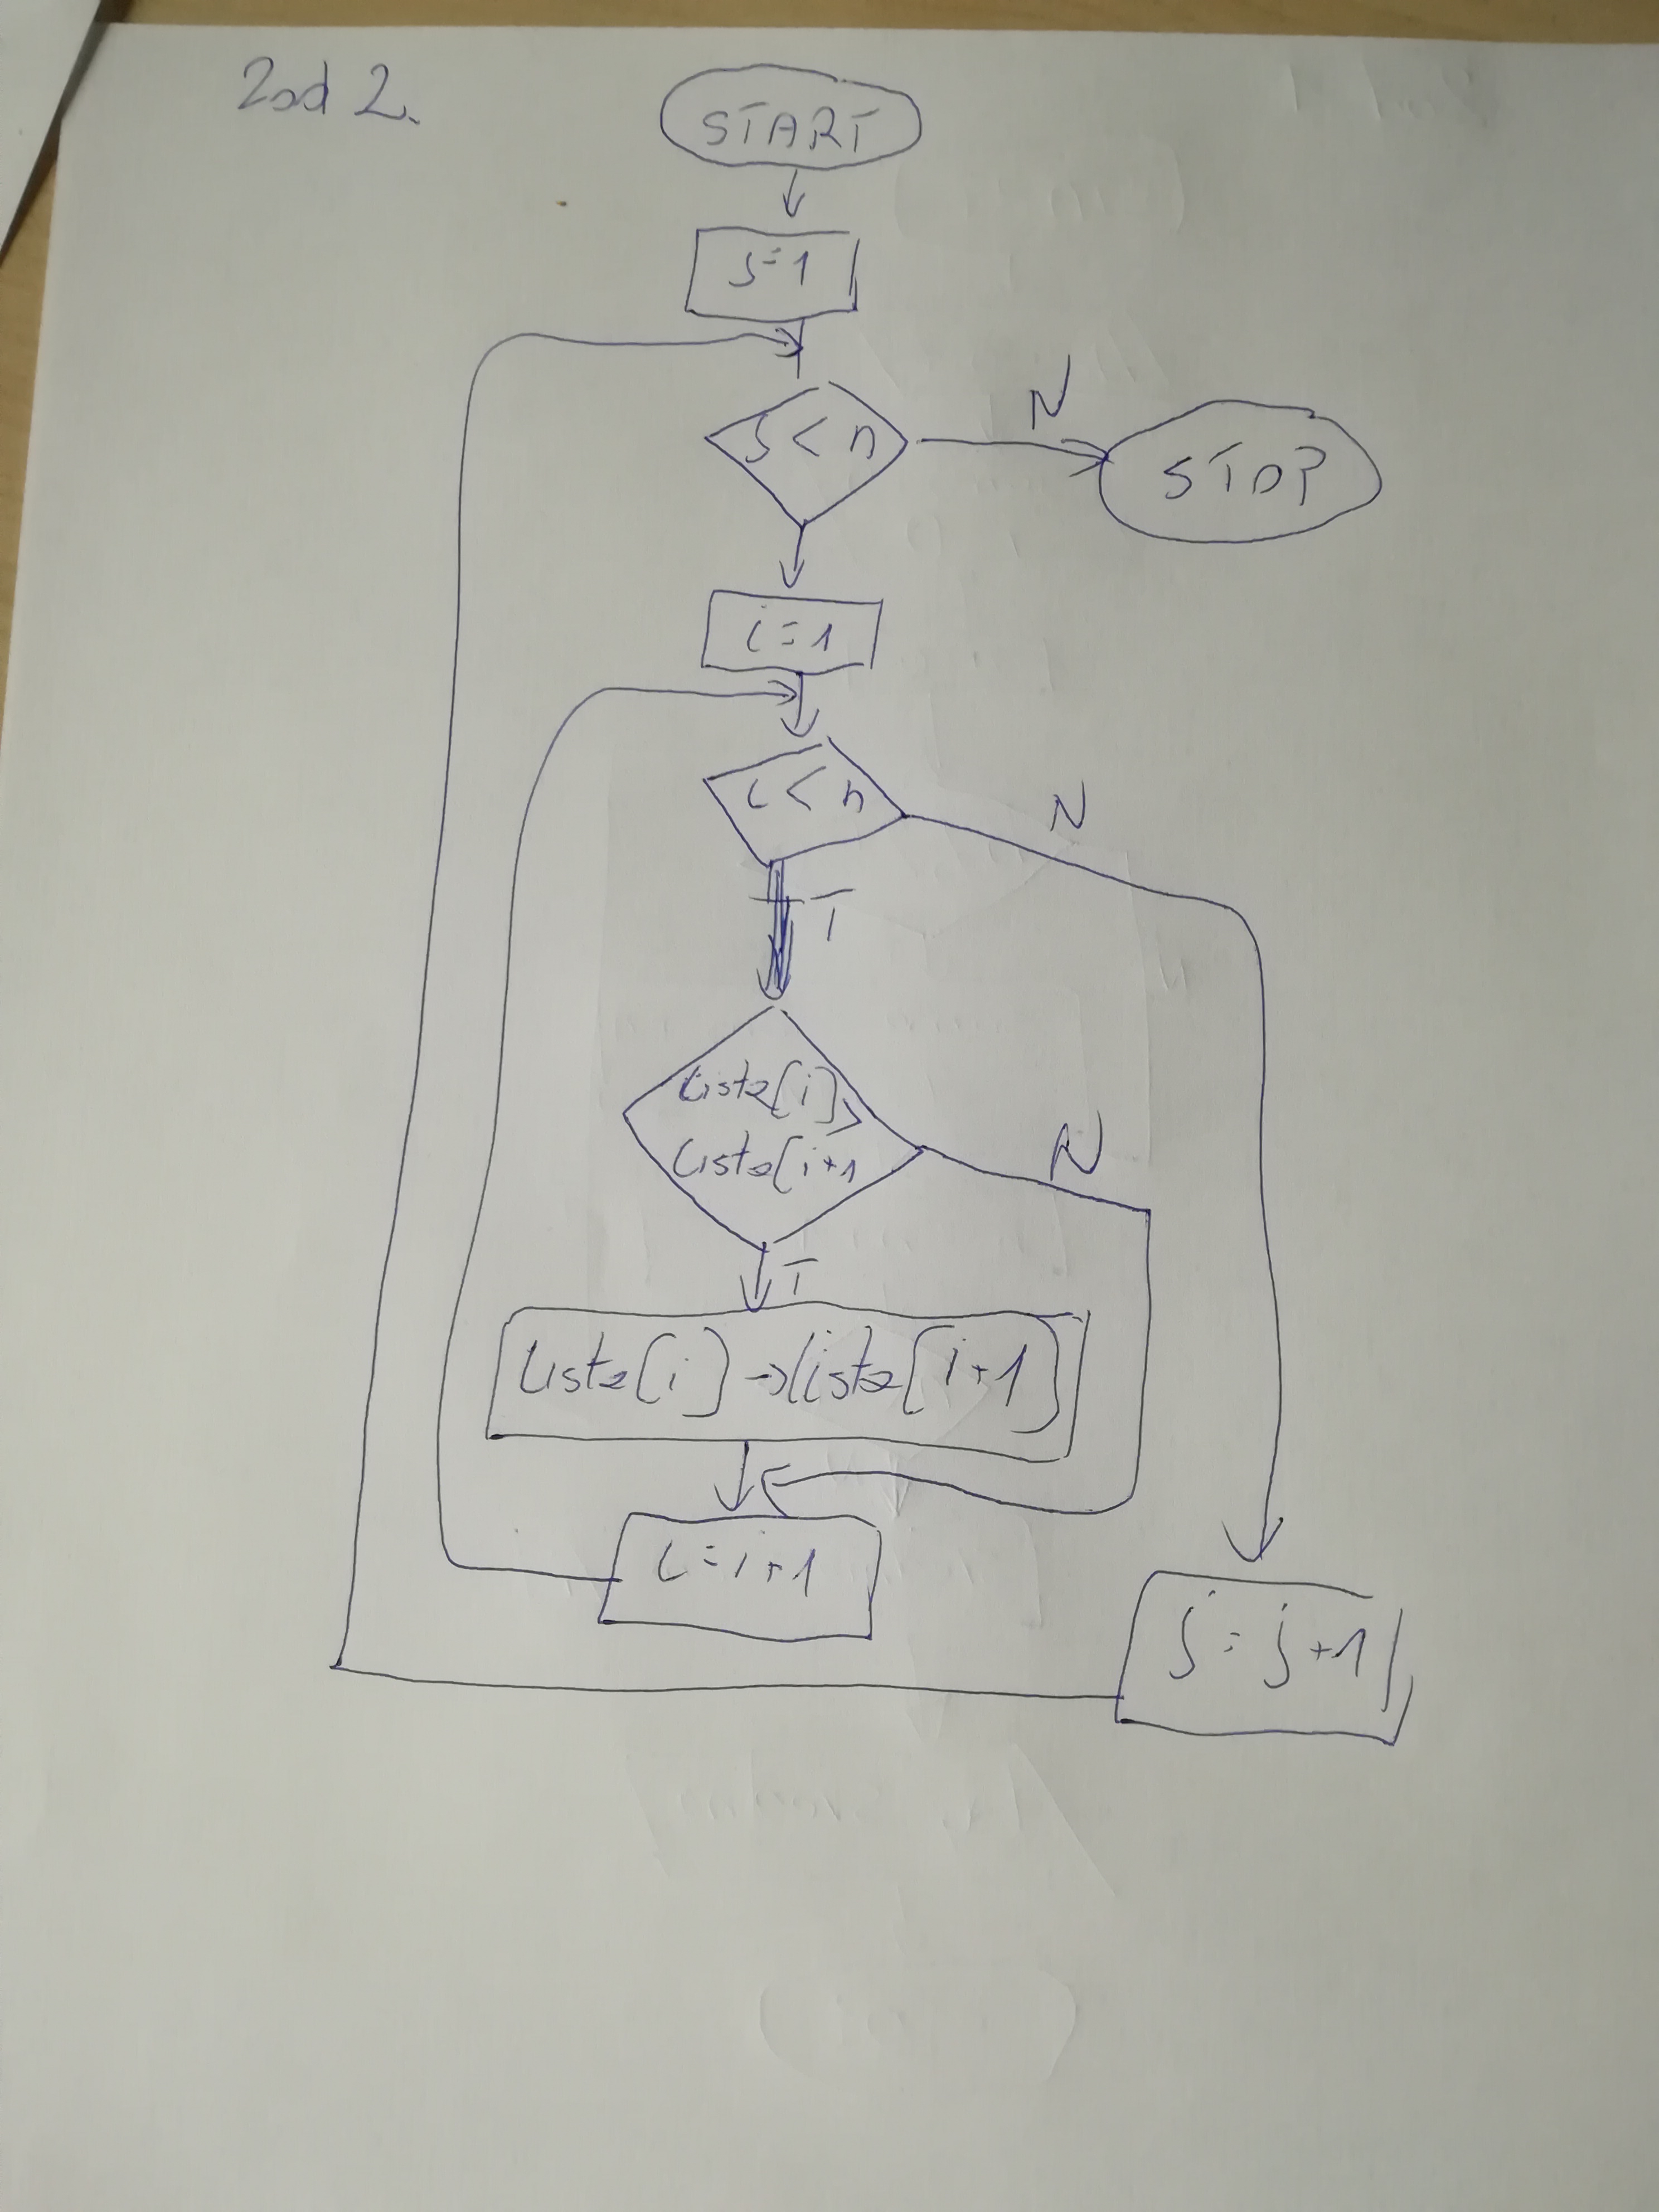 Zad 2.
START
j=1
j < n
N
STOP
i=1
i < n
N
T
Lista[i]>
Lista[i+1
N
T
Lista[i]→Lista[i+1]
i=i+1
j=j+1